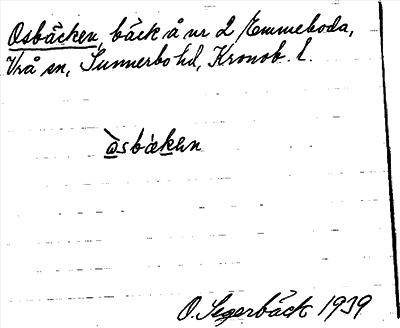 Osbäcken, bäck å nr 2 Emmeboda,
Vrå sn, Sunnerbo hd, Kronob. l.
òsbäken
O. Segerbäck 1939